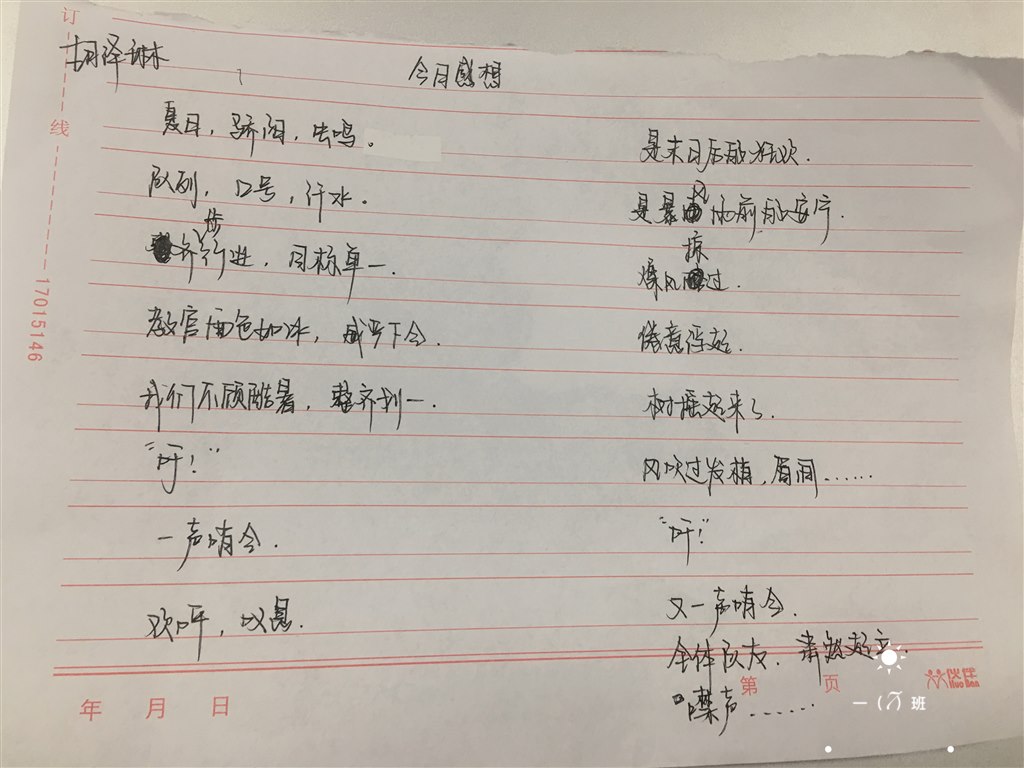 订
胡泽琳
今日感想
线
17015146
夏日，骄阳，虫鸣。
队列，口号，汗水。
齐步行进，目标单一.
教官面色如冰，威严下令.
我们不顾酷暑，整齐划一.
“吁！”
一声哨令.
欢呼，叹息.
是末日后的狂欢.
是暴风雨前的安宁.
爆风掠过.
倦意浮起.
树摇起来了.
风吹过发梢，眉间……
“吁！”
又一声哨令.
全体队友，肃然起立.
口噤声……
年 月 日
第 页
伙伴
Huo Ban
班